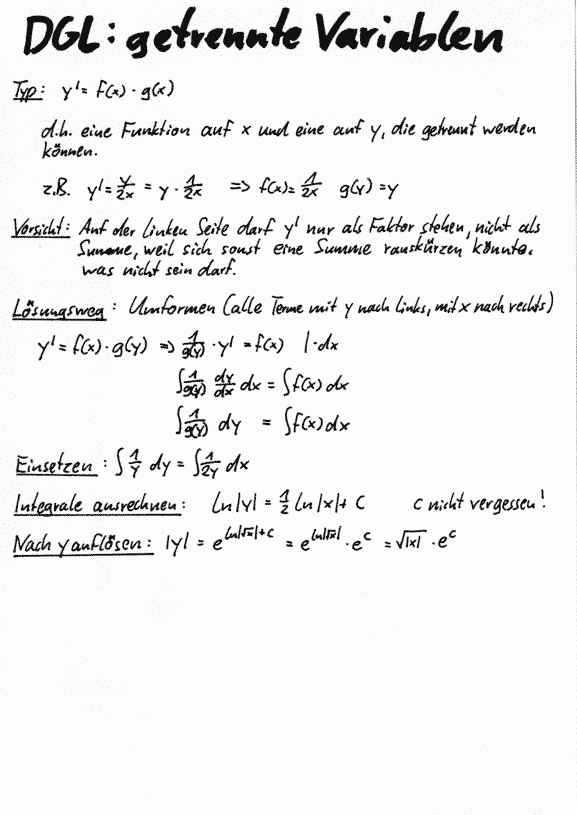 DGL: getrennte Variablen
Typ: y' = f(x) · g(x)
d.h. eine Funktion auf x und eine auf y, die getrennt werden
können.
z.B. y' = y/2x = y · 1/2x => f(x) = 1/2x g(y) = y
Vorsicht: Auf der linken Seite darf y' nur als Faktor stehen, nicht als
Summe, weil sich sonst eine Summe rauskürzen könnte,
was nicht sein darf.
Lösungsweg: Umformen (alle Terme mit y nach links, mit x nach rechts)
y' = f(x) · g(y) => 1/g(y) · y' = f(x) | · dx
∫ 1/g(y) dy/dx dx = ∫ f(x) dx
∫ 1/g(y) dy = ∫ f(x) dx
Einsetzen: ∫ 1/y dy = ∫ 1/2y dx
Integrale ausrechnen: ln|y| = 1/2 ln|x| + C c nicht vergessen!
Nach y auflösen: |y| = e^(ln|√x|+c) = e^(ln|√x|) · e^c = √|x| · e^c